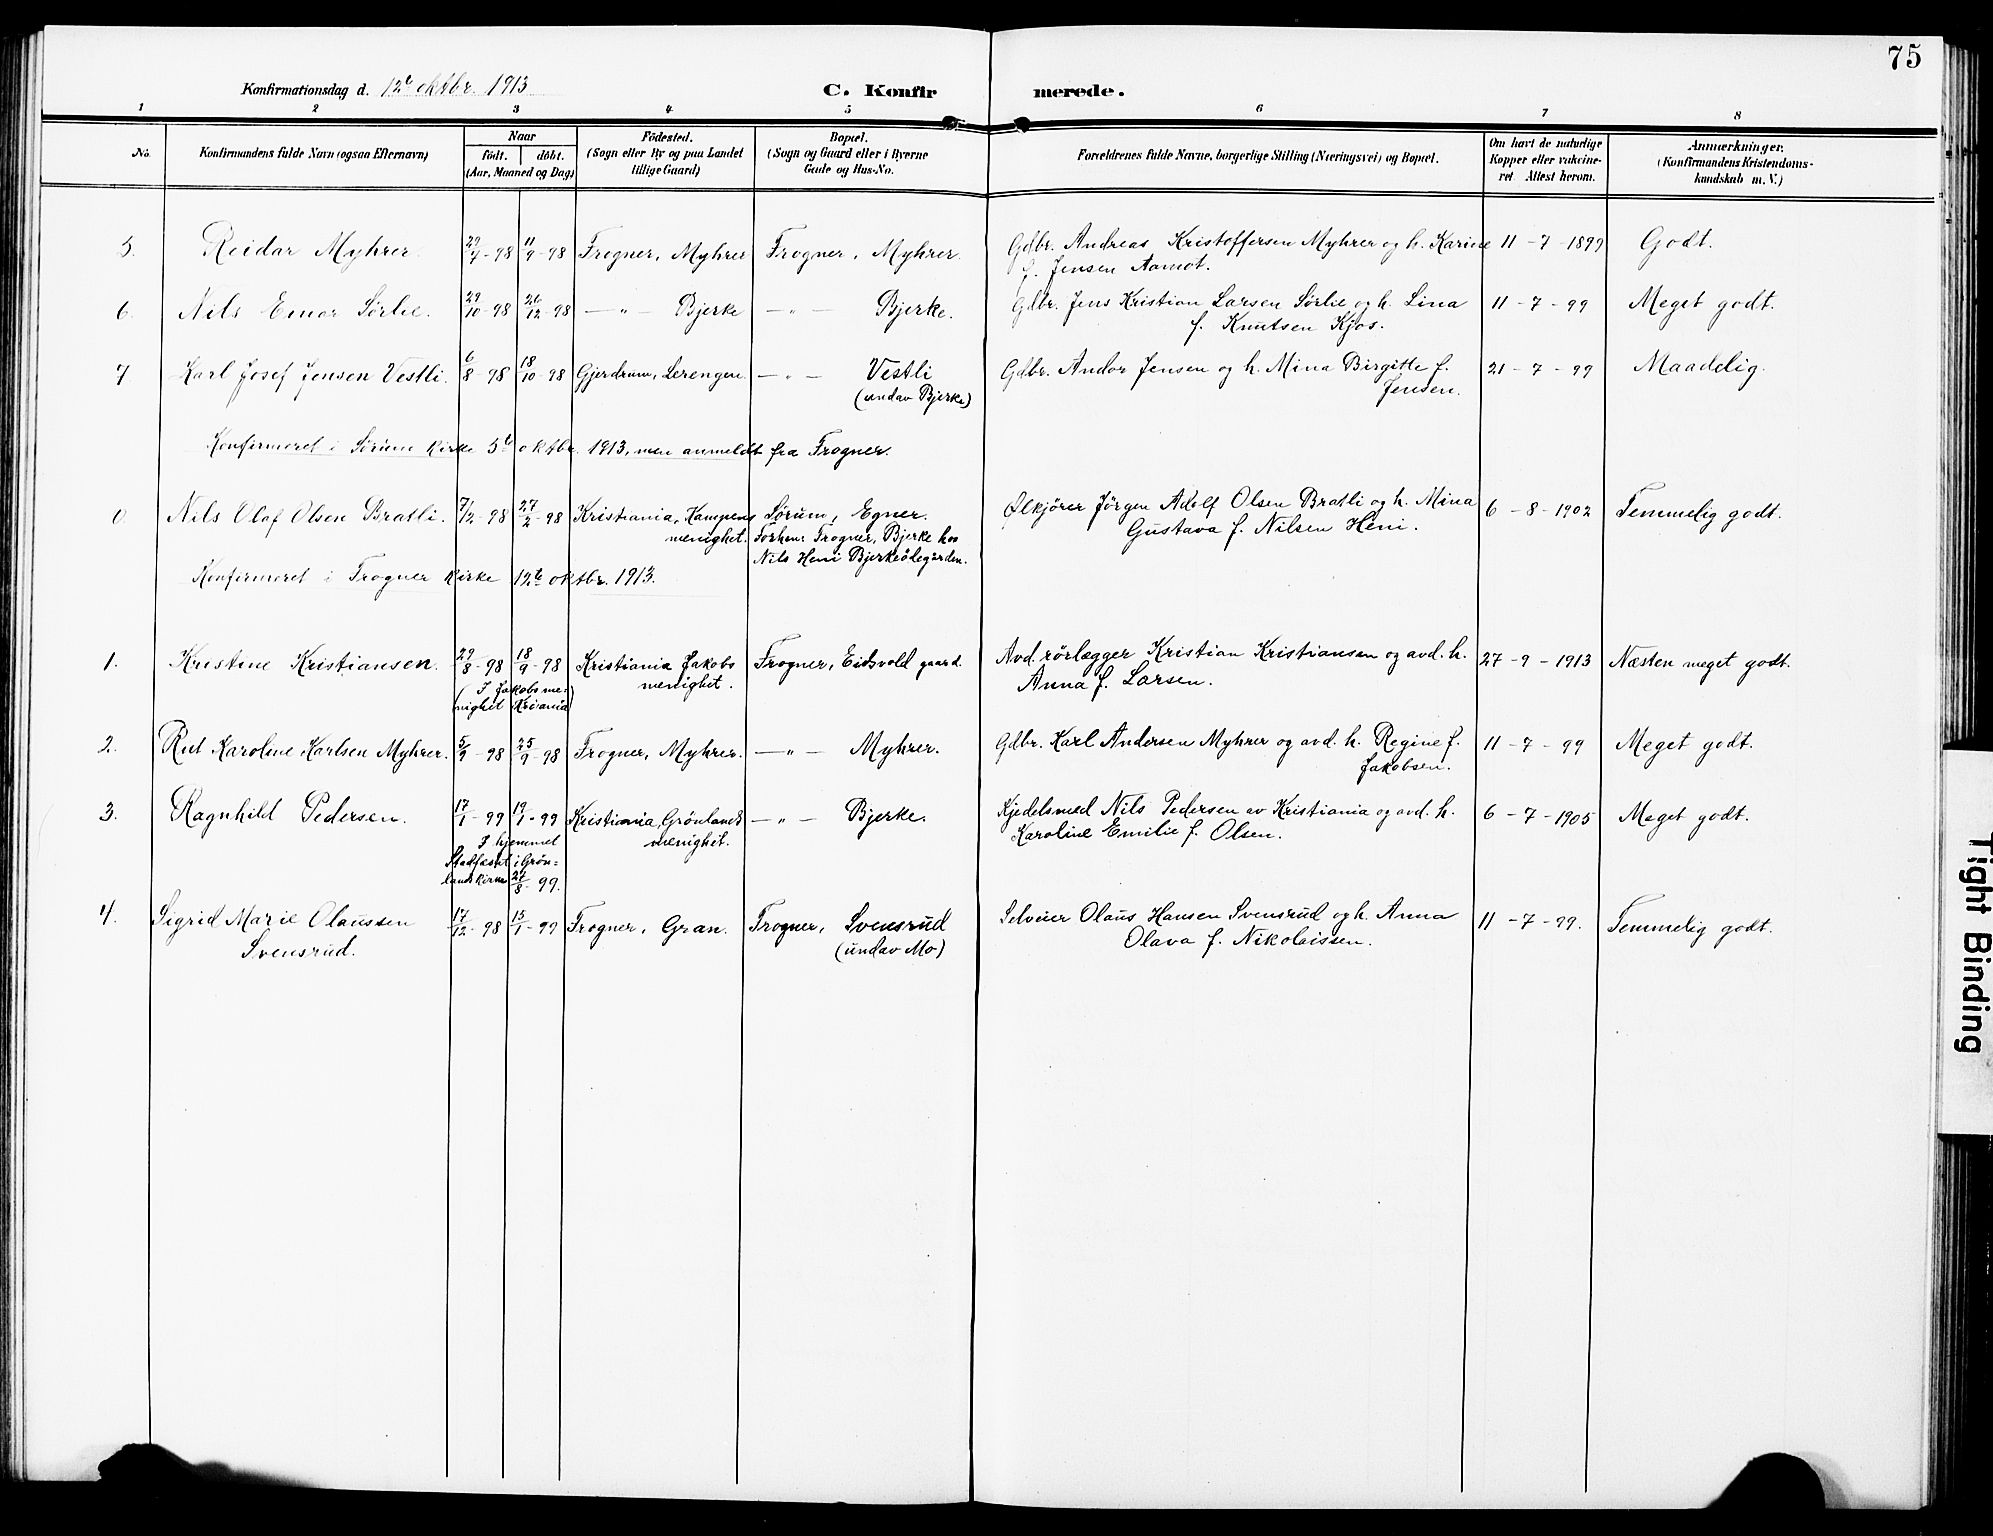 75
Konfirmationsdag d. 12te oktbr. 1913
C. Konfirmerede.
1 2 3 4 5 6 7 8
No.
Konfirmandens fulde Navn (ogsaa Efternavn)
Naar
födt. döbt.
(Aar, Maaned og Dag)
Födested.
(Sogn eller By og paa Landet
tillige Gaard)
Bopæl.
(Sogn og Gaard eller i Byerne
Gade og Hus-No.
Forældrenes fulde Navne, borgerlige Stilling (Næringsvei) og Bopæl.
Om havt de naturlige
Kopper eller vakcine-
ret Attest herom.
Anmærkninger.
(Konfirmandens Kristendoms-
kundskab m. V.)
5. Reidar Myhrer. 29/7-98 11/9-98 Frogner, Myhrer Frogner, Myhrer. Gdbr. Andreas Kristoffersen Myhrer og h. Karine 11-7-1899 Godt.
f. Jensen Aamot.
6. Nils Einar Sörlie. 29/10-98 26/12-98 — " — Bjerke — " — Bjerke. Gdbr. Jens Kristian Larsen Sörlie og h. Lina 11-7-99 Meget godt.
f. Knutsen Kjos.
7 Karl Josef Jensen Vestli. 6/8-98 18/10-98 Gjerdrum, Lerengen. — " — Vestli Gdbr. Andor Jensen og h. Mina Birgitte f. 21-7-99 Maadelig.
(undav Bjerke) Jensen.
Konfirmeret i Sörum kirke 5te oktbr. 1913, men anmeldt fra Frogner.
0. Nils Olaf Olsen Bratli. 7/2-98 27/2-98 Kristiania, Kampens Sörum, Egner. Ölkjörer Jörgen Adolf Olsen Bratli og h. Mina 6-8-1902 Temmelig godt.
menighet. Forhen: Frogner, Bjerke hos Gustava f. Nilsen Heni.
Nils Heni Bjerkeödegården.
Konfirmeret i Frogner kirke 12te oktbr. 1913.
1. Kristine Kristiansen. 29/8-98 18/9-98 Kristiania Jakobs Frogner, Eidsvold gaard. Avd. rörlægger Kristian Kristiansen og avd. h. 27-9-1913 Næsten meget godt.
(I Jakobs me- menighet. Anna f. Larsen.
nighet Kr.ania)
2. Rut Karoline Karlsen Myhrer. 5/9-98 25/9-98 Frogner, Myhrer. — " — Myhrer. Gdbr. Karl Andersen Myhrer og avd. h. Regine f. 11-7-99 Meget godt.
Jakobsen.
3. Ragnhild Pedersen. 17/1-99 19/1-99 Kristiania, Grönlands — " — Bjerke. Kjedelsmed Nils Pedersen av Kristiania og avd. h. 6-7-1905 Meget godt.
I hjemmet menighet. Karoline Emilie f. Olsen.
Stadfæstet i Grön-
lands kirke 27/8-99.
4. Sigrid Marie Olaussen 17/12-98 15/1-99 Frogner, Gran. Frogner, Svensrud Selveier Olaus Hansen Svensrud og h. Anna 11-7-99. Temmelig godt.
Svensrud. (undav Mo) Olava f. Nikolaissen.
Tight Binding